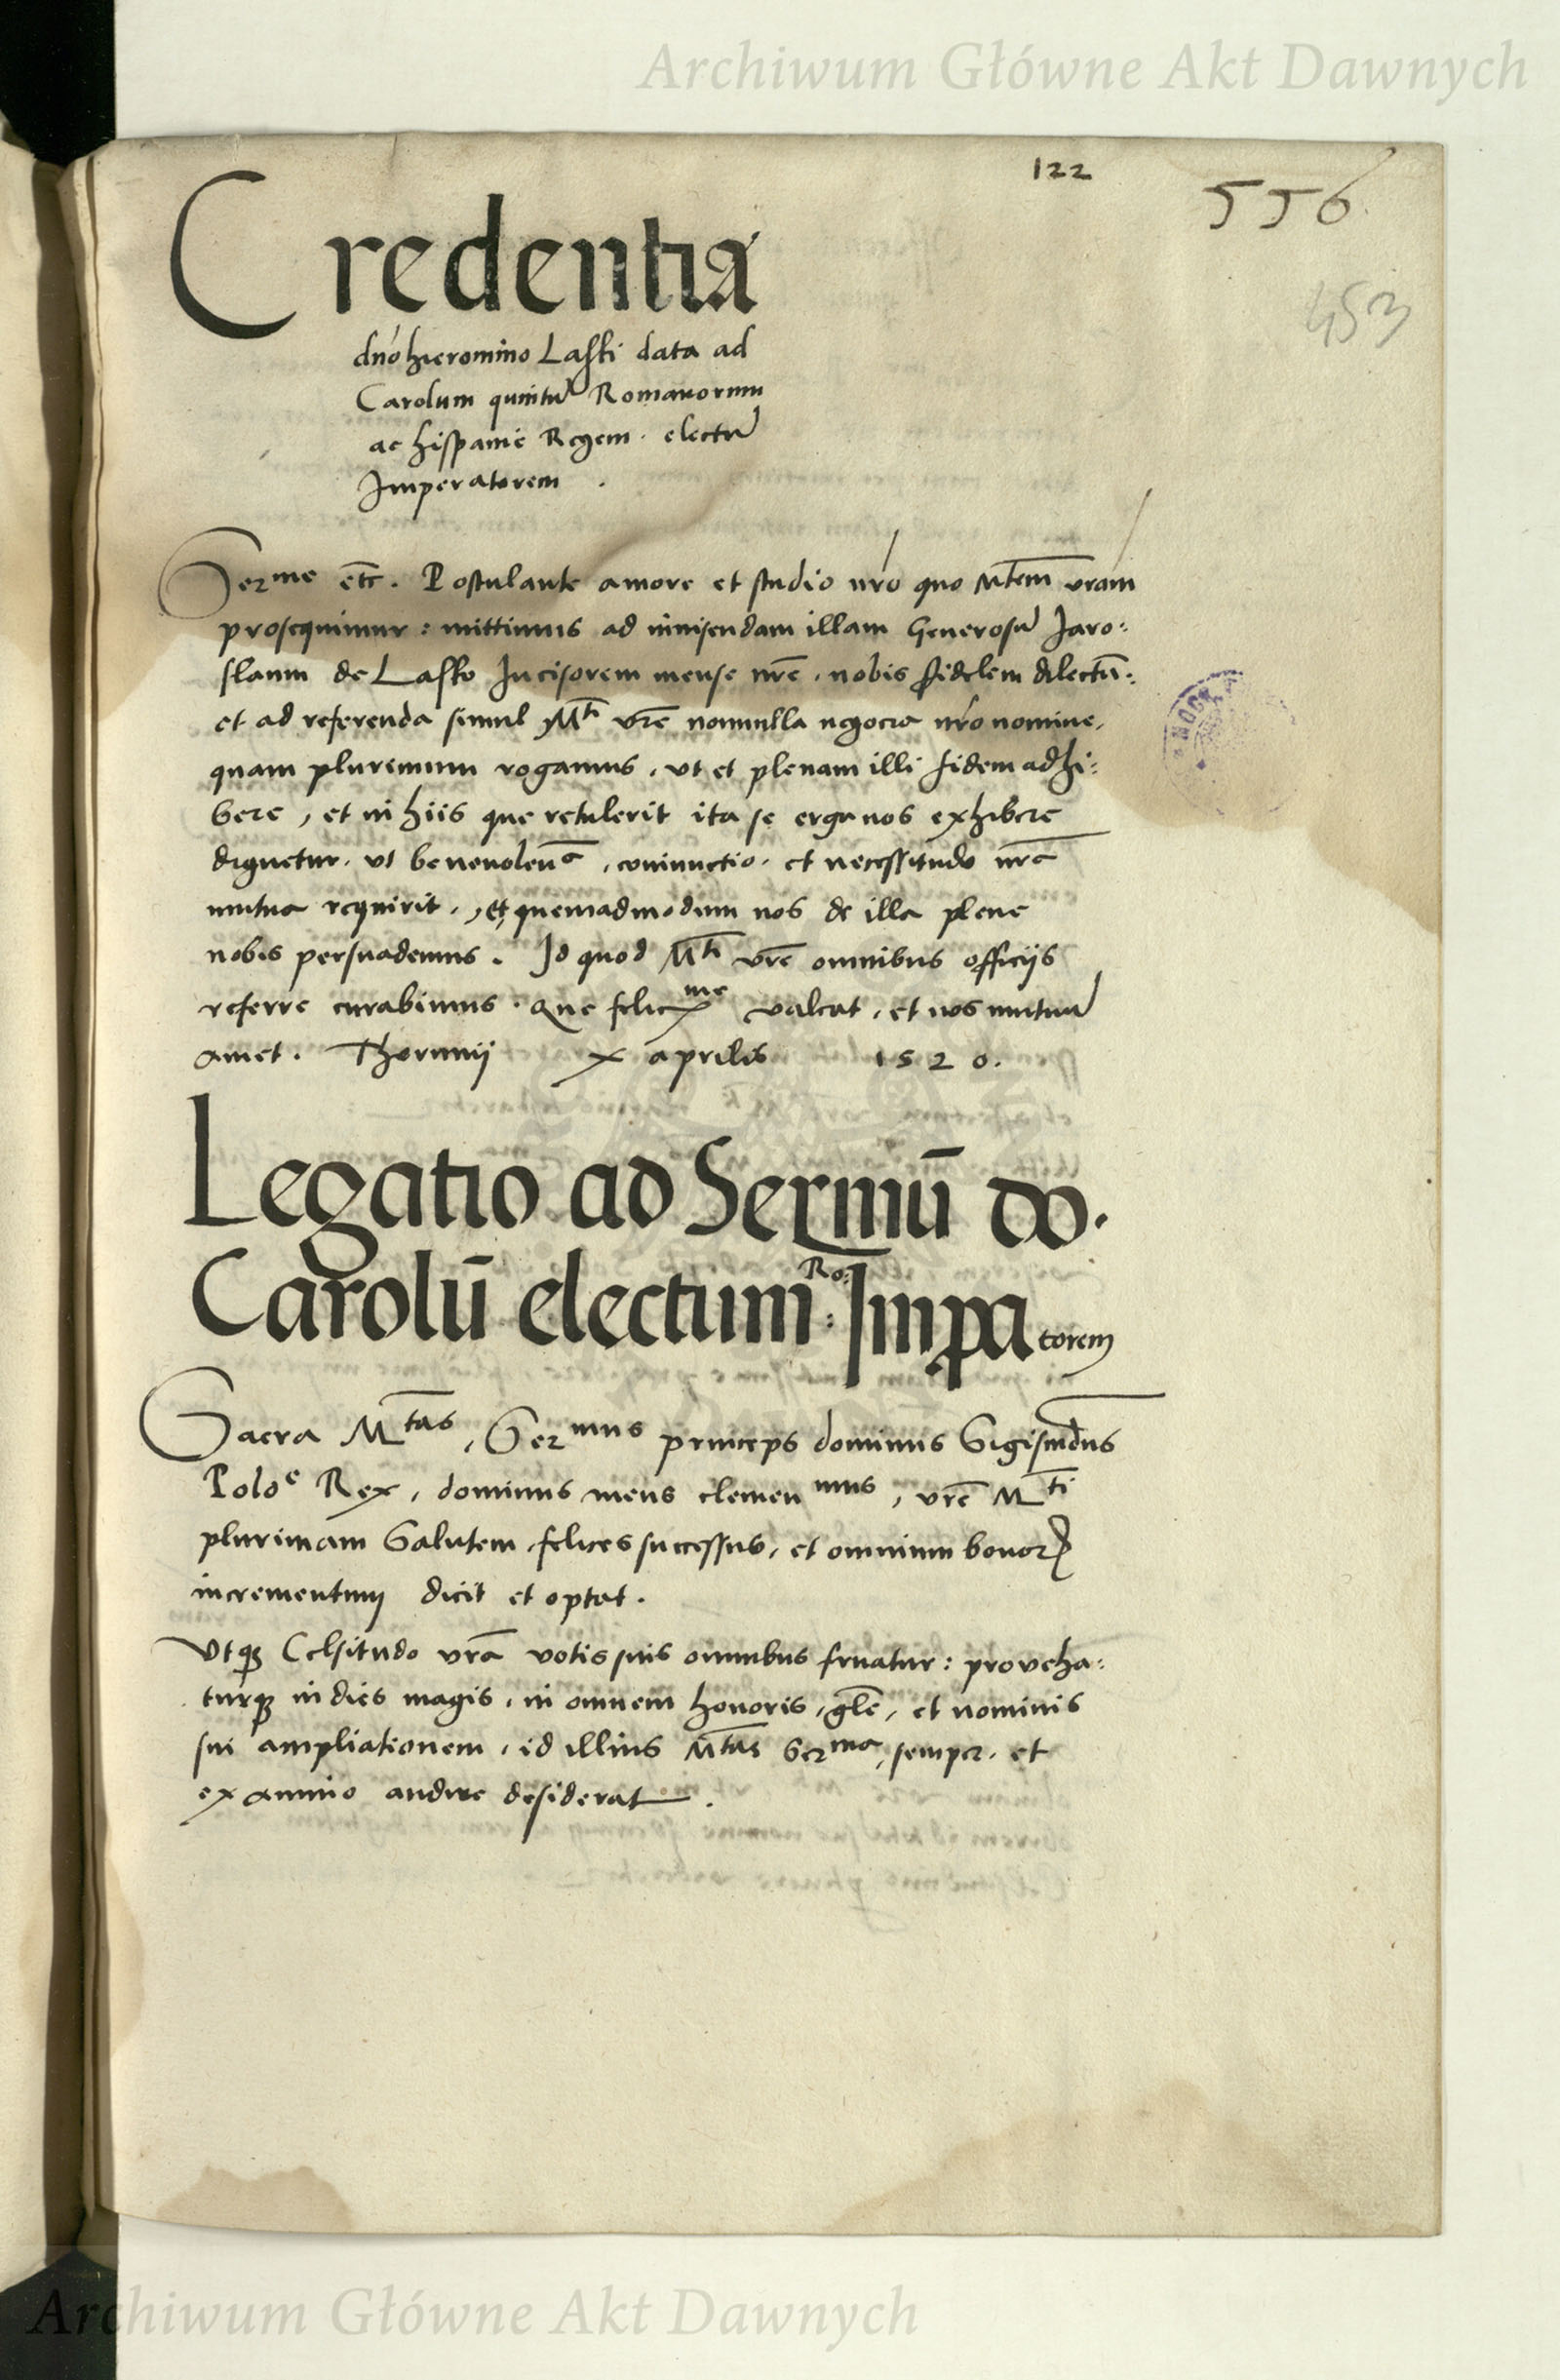 Archiwum Główne Akt Dawnych
122
556
453
Credentia
dno hieronimo Laski data ad
Carolum quintũ Romanorum
ac hispanie Regem. electũ
Imperatorem .
Serme etc. Postulante amore et studio nro quo Mtem vram
prosequimur : mittimus ad inuisendam illam Generosũ Jaro:
slaum de Lasko Incisorem mense nre, nobis fidelem dilectũ:
et ad referenda simul Mti vre nonnulla negocia nro nomine,
quam plurimum rogamus, vt et plenam illi fidem adhi:
bere, et in hiis que retulerit ita se erga nos exhibere
dignetur, vt beneuolenc̃, coniunctio, et necessitudo nrã
mutua requirit, et, quemadmodum nos de illa plene
nobis persuademus. Id quod Mti vre omnibus officijs
referre curabimus. Que felicme valeat, et nos mutuũ
amet. Thorunij x aprilis 1520.
Legatio ad Sermũ do.
Carolũ electum Ro: Impatorem
Sacra Mtas, Sermus princeps dominus Sigismdus
Poloe Rex, dominus meus clemenmus, vre Mti
plurimam Salutem, felices successus, et omnium bonorꝝ
incrementum dicit et optat.
Vtqꝫ Celsitudo vrã votis suis omnibus fruatur: proueha:
turqꝫ in dies magis, in omnem honoris, gle, et nominis
sui ampliationem, id illius Mtas Serma, semper, et
ex animo audire desiderat.
Archiwum Główne Akt Dawnych